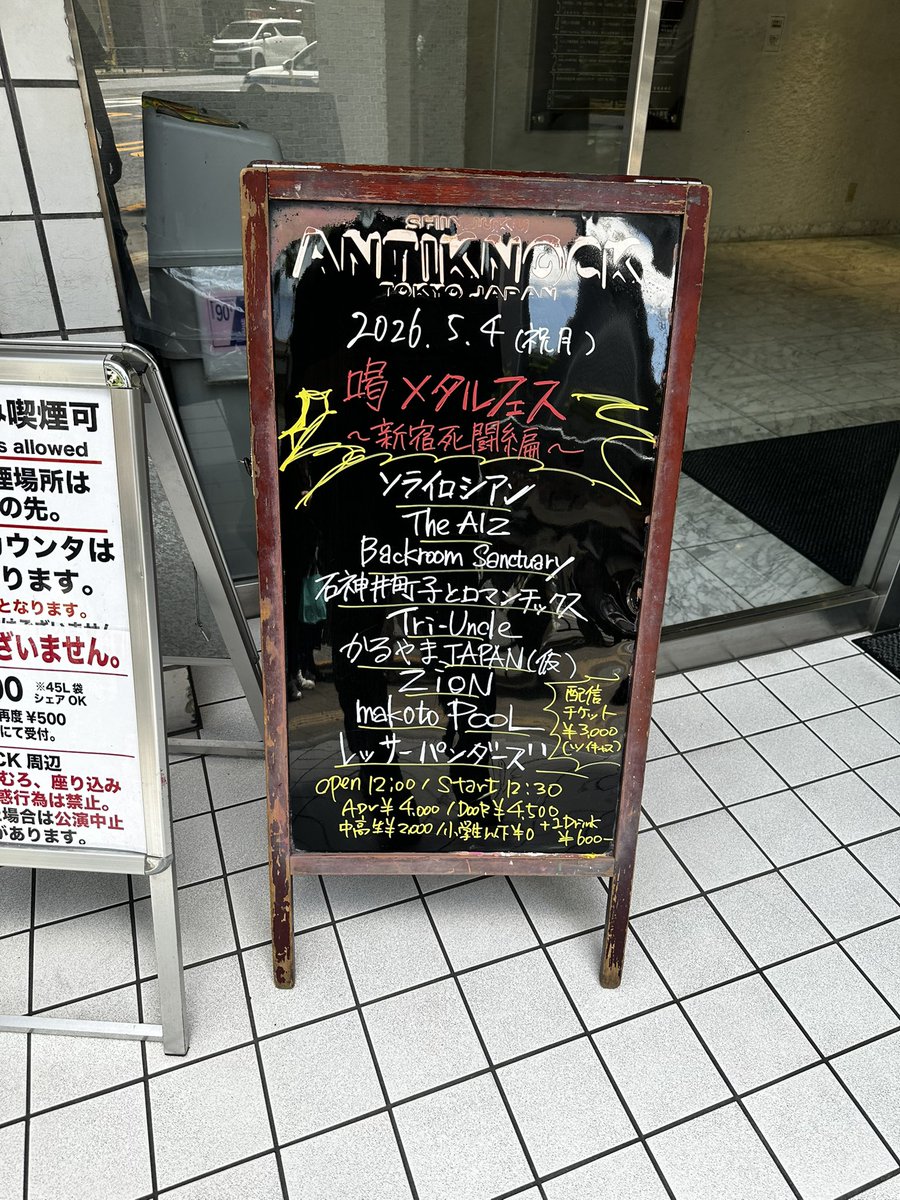 SHINJUKU
ANTIKNOCK
TOKYO JAPAN
2026.5.4(祝月)
喝メタルフェス
～新宿死闘編～
ソライロシアン
The AIZ
Backroom Sanctuary
石神井町子とロマンチックス
Tri-Uncle
かるやまJAPAN(仮)
ZiON
makoto POOL
レッサーパンダーズ
配信
チケット
¥3,000
(ツイキャス)
open 12:00 / Start 12:30
Adv¥4,000 / Door¥4,500
中高生¥2000 / 小学生以下¥0
+1Drink
¥600-
み喫煙可
s allowed
煙場所は
の先。
カウンタは
ります。
となります。
ざいません。
00 ※45L袋
シェアOK
再度 ¥500
にて受付。
CK 周辺
むろ、座り込み
惑行為は禁止。
場合は公演中止
があります。